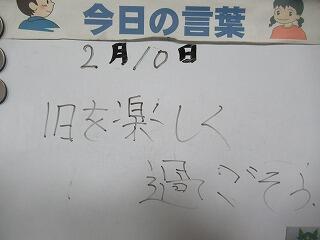 今日の言葉
2月10日
1日を楽しく
過ごそう